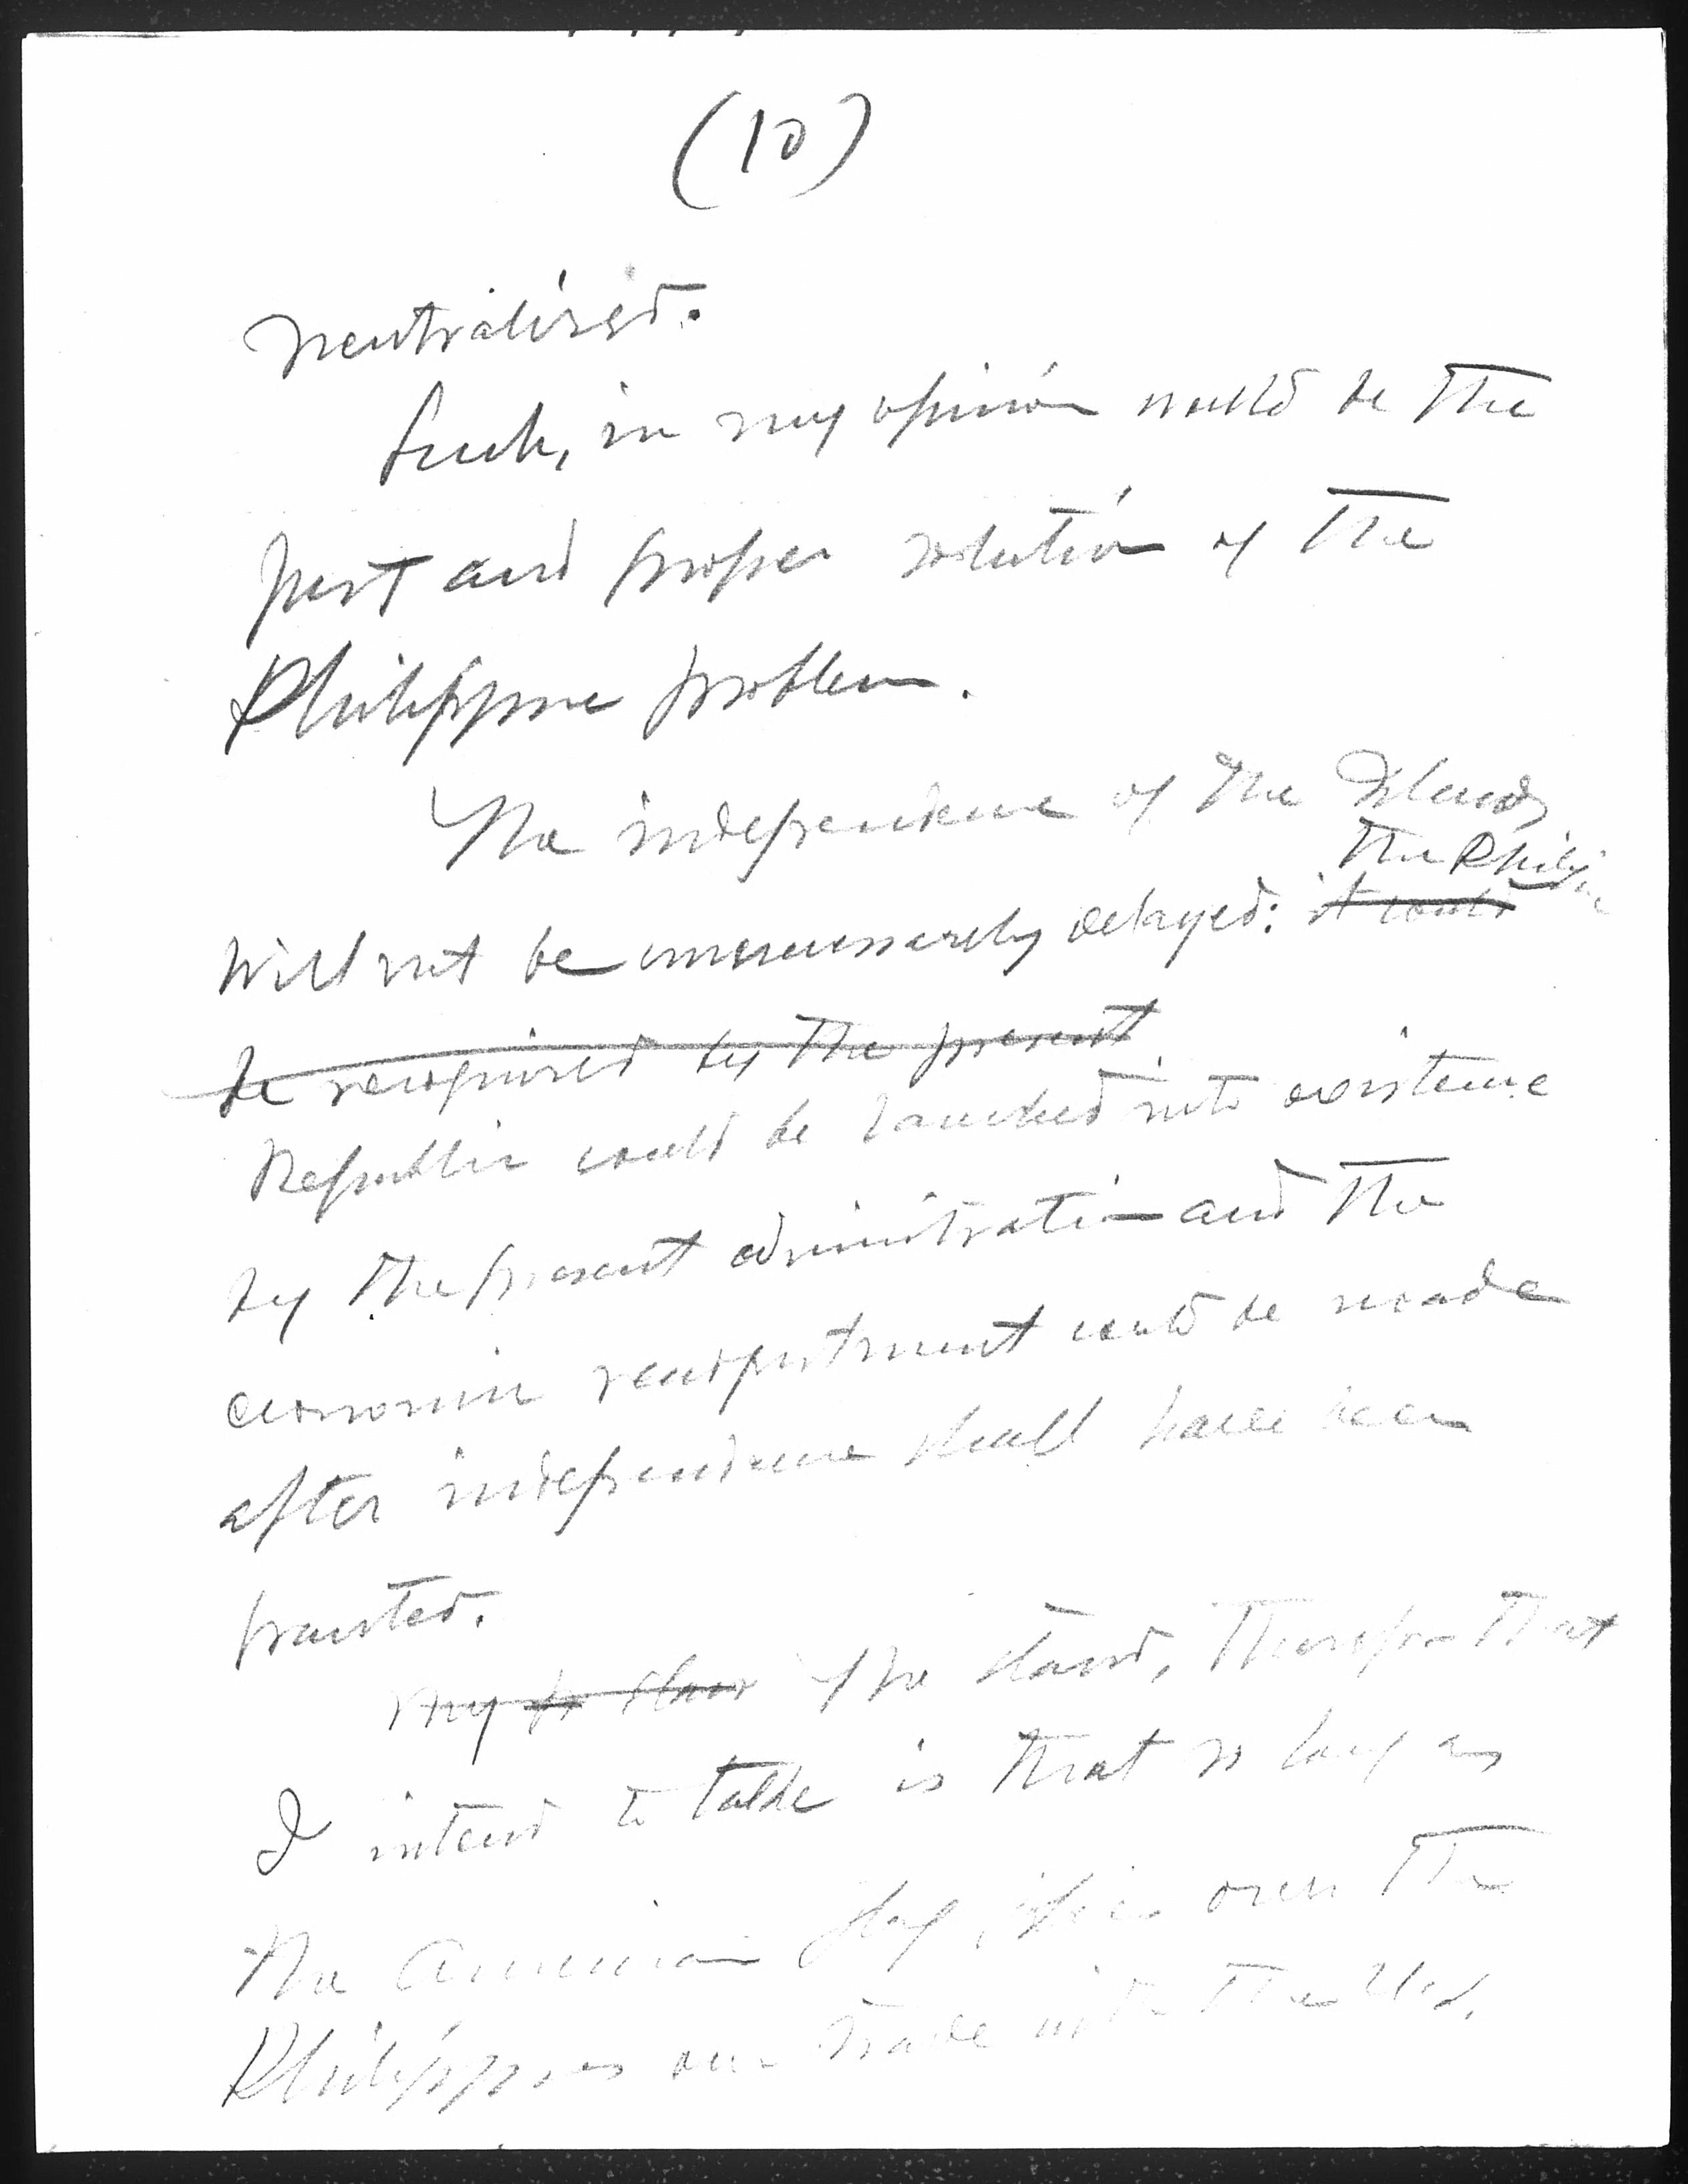 (10)
neutralized.
Such, in my opinion would be the
just and proper solution of the
Philippine problem.
The independence of the Islands
The Philippine
will not be unnecessarily delayed: it could
be recognized by the present
Republic could be launched into existence
by the present administration and the
economic readjustment could be made
after independence shall have been
granted.
My stand The stand, therefore that
I intend to take is that so long as
the American flag flies over the
Philippines our trade with the U.S.